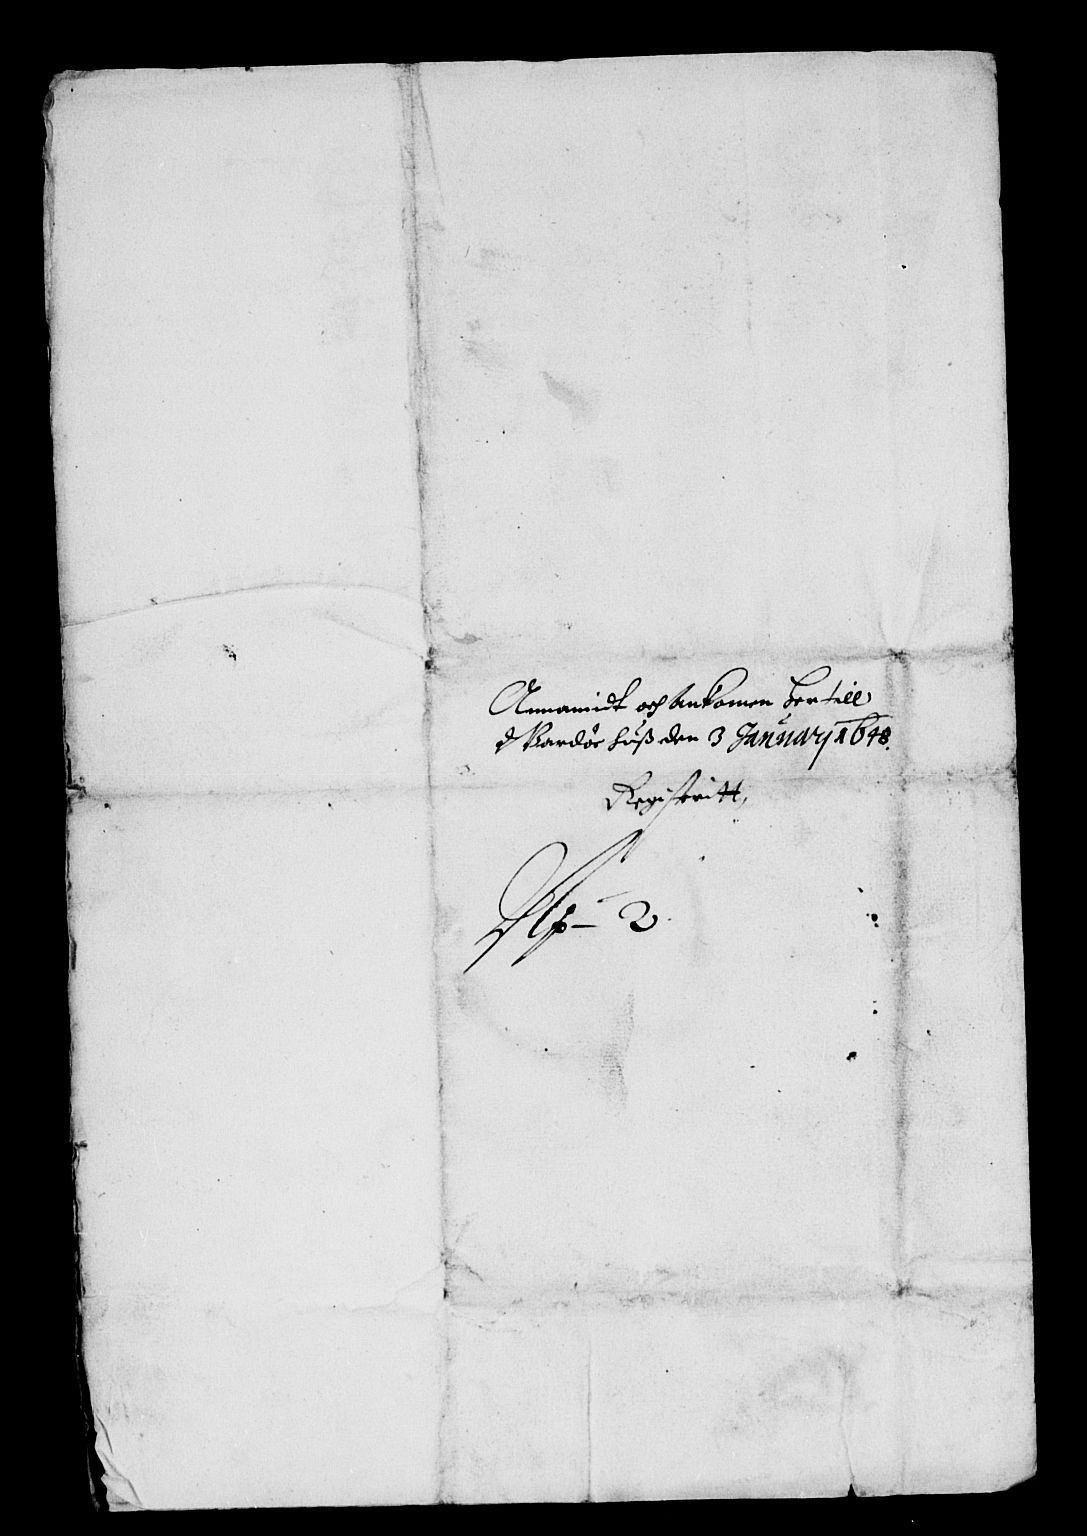 Annamidt och Ankomen her till
Wardøehuß den 3 January 1648.
Registeritt,
2